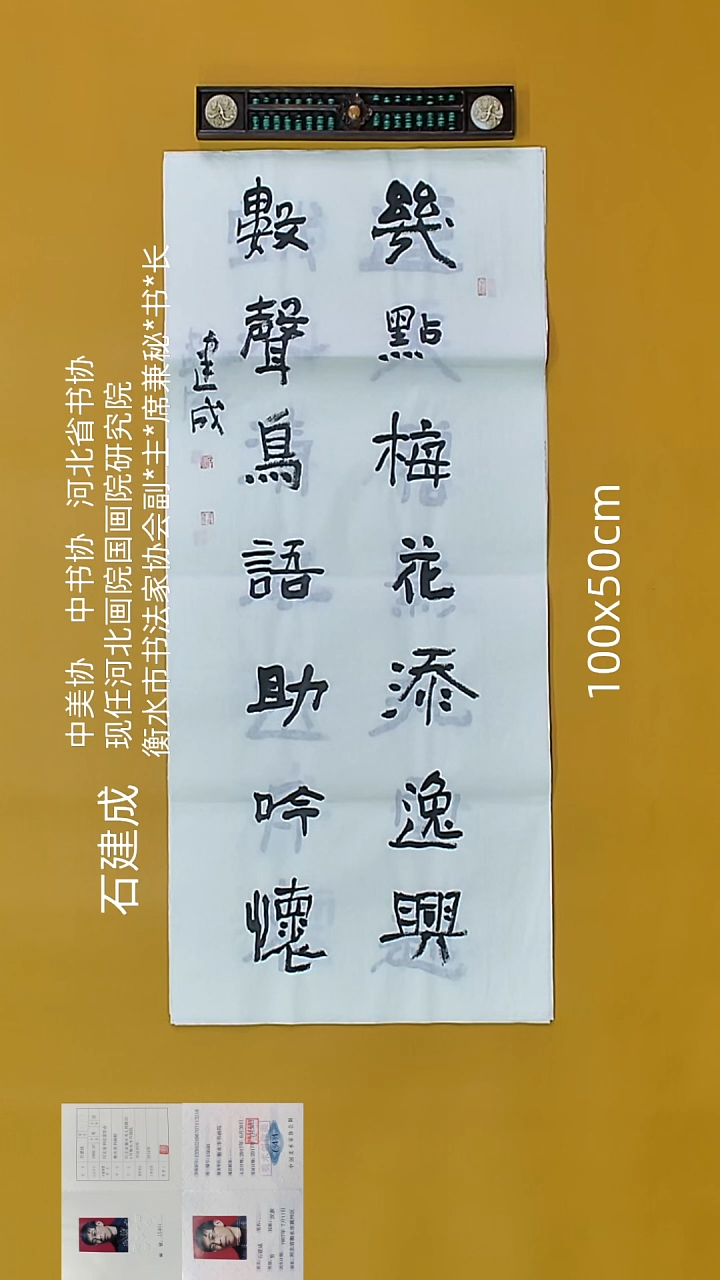 幾點梅花添逸興
數聲鳥語助吟懷
建成
石建成
中美协 中书协 河北省书协
现任河北画院国画院研究院
衡水市书法家协会副*主*席兼秘*书*长
100x50cm